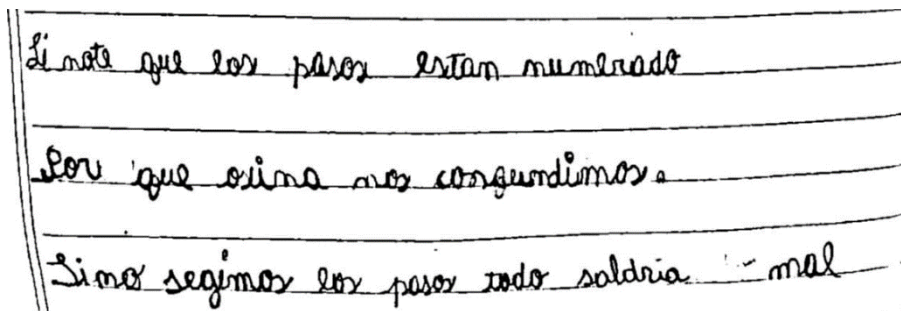 Si note que los pasos estan numerado
Por que osina nos congundimos.
Si no segimos los pasos todo saldria mal